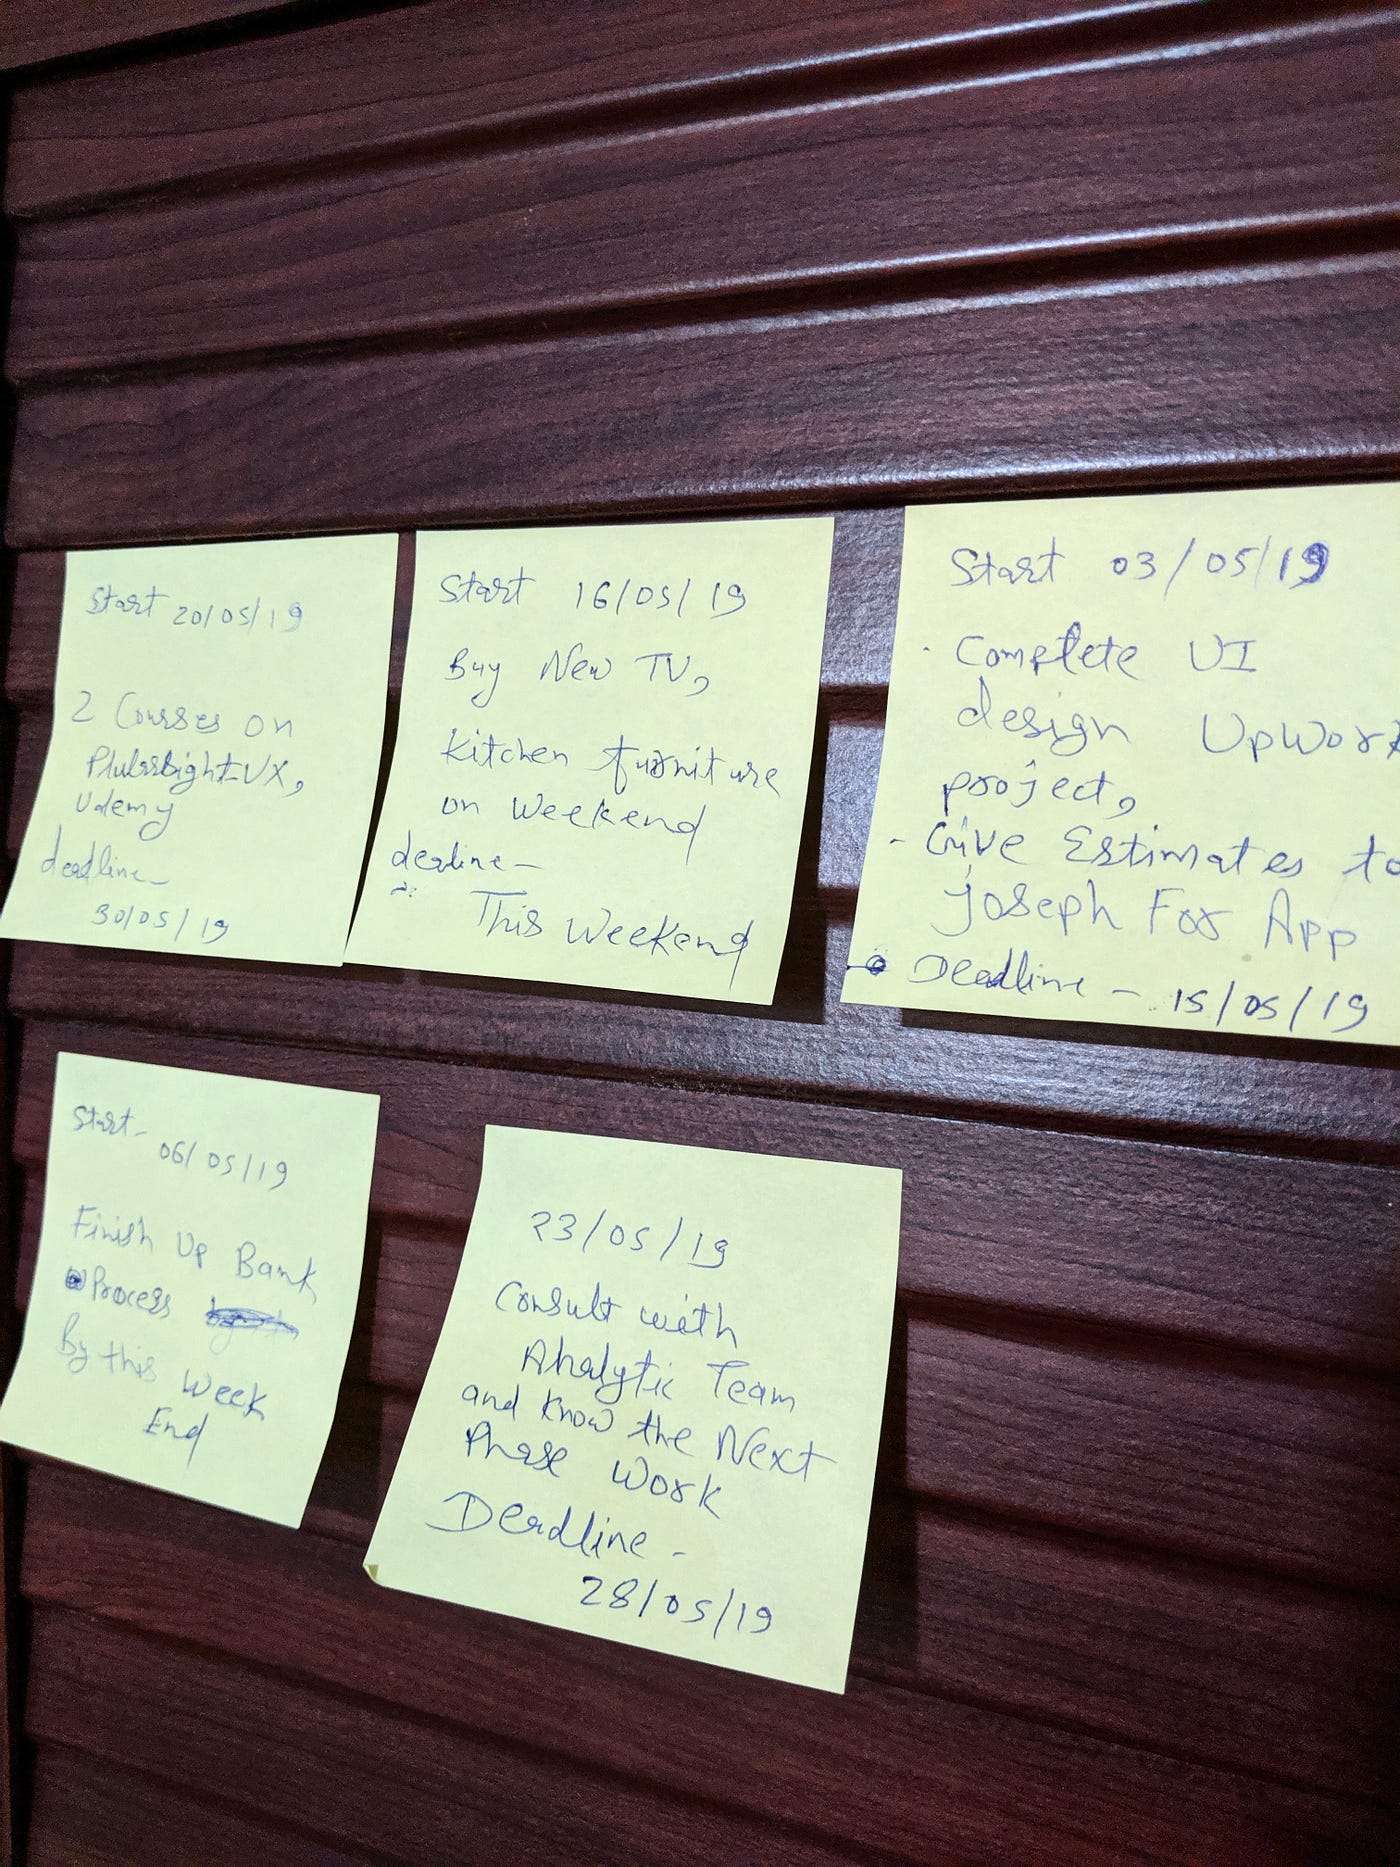 Start 20/05/19
2 Courses on
UX,
Udemy
deadline-
30/05/19
Start 16/05/19
Buy New TV,
Kitchen furniture
on Weekend
deadline-
This Weekend
Start 03/05/19
· Complete UI
design UpWork
project,
- Give Estimates to
Joseph For App
Deadline - 15/05/19
Start-
06/05/19
Finish Up Bank
Process
By this Week
End
23/05/19
Consult with
Analytic Team
and Know the Next
Phase Work
Deadline -
28/05/19